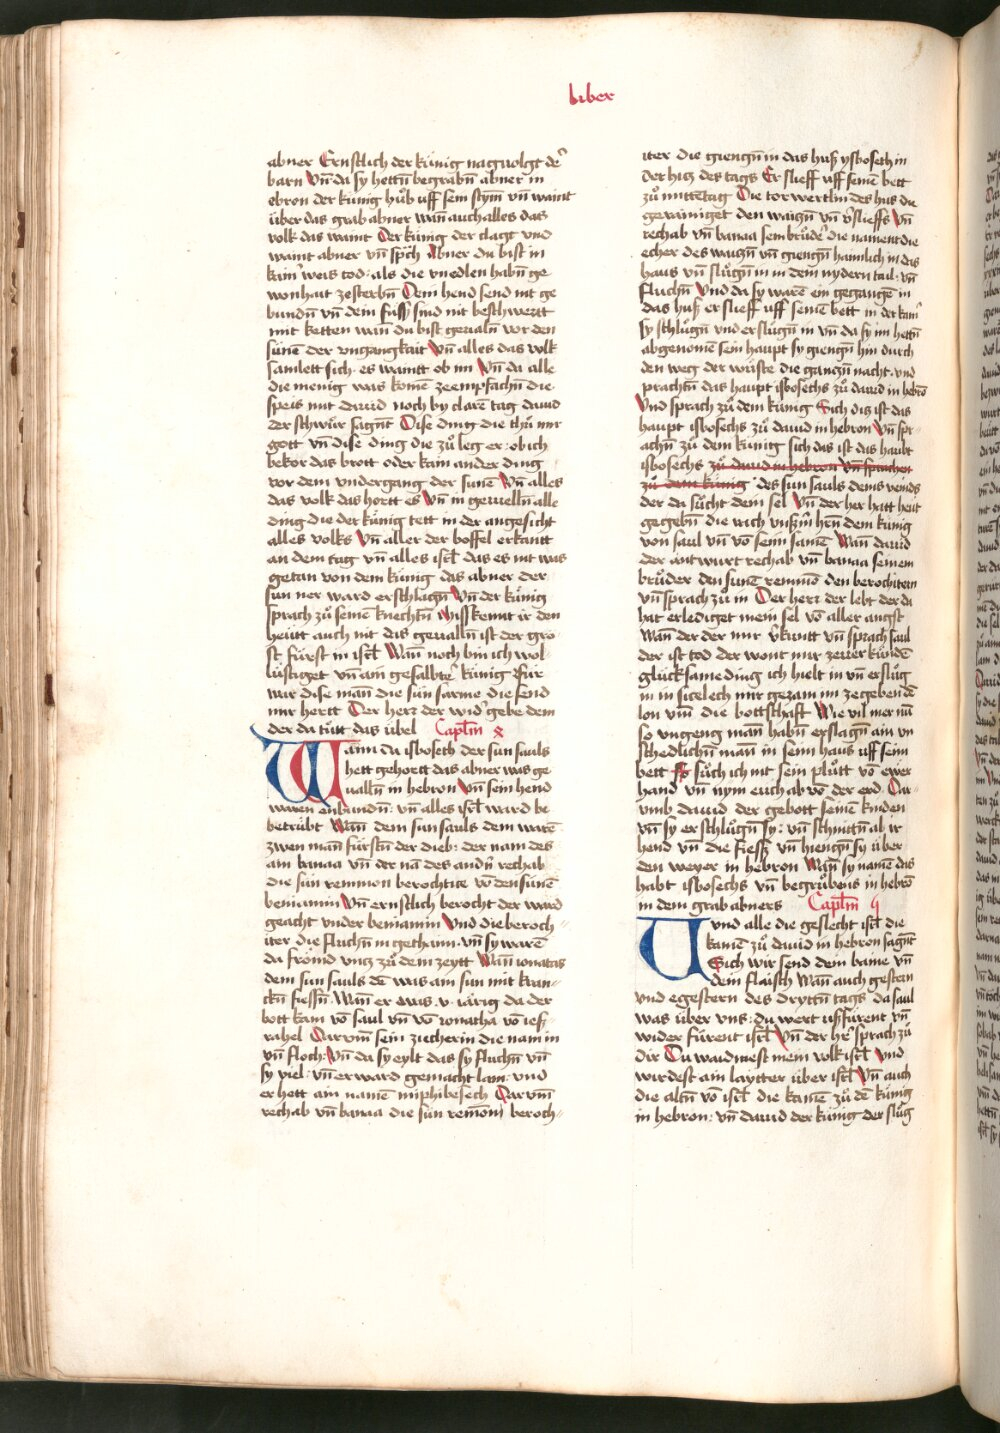 liber
abner Ernstlich der künig nachuolgt dē
barn Vn̄ da sy hettn̄ begrabn̄ abner in
ebron der künig hůb uff sein stym̄ vn̄ waint
über das grab abner wan̄ auch alles das
volk das waint Der künig der clagt vnd
waint abner vn̄ sp̄ch Abner du bist in
kain̄ weis tod · als die vnedlen habn̄ ge
wonhait zesterbn̄ Dein hend send nit ge
bundn̄ vn̄ dein füssz sind nit beschwertt
mit ketten wan̄ du bist geualn̄ vor den
sünē der vngangkait Vn̄ alles das volk
samlett sich · es waintt ob im Vn̄ da alle
die menig was komē zeempfachn̄ die
speis mit dauid noch by clarē tag dauid
der schwůr sagnt Dise ding die thů mir
gott vn̄ dise ding die zů leg er · ob ich
bekor das brott oder kain ander ding
vor dem vndergang der sunē Vn̄ alles
das volk das hortt es Vn̄ in geuielln̄ alle
ding die der künig tett in der angesicht
alles volks Vn̄ aller der boffel erkantt
an dem tag vn̄ alles isrl̄ das es nit was
getan von dem künig das abner der
sun ner ward erschlagn̄ Vn̄ der künig
sprach zů seinē knechtn̄ Whisskennt ir den
heütt auch nit das geualln̄ ist der grö
st fürst in isrl̄ Wan̄ noch bin ich wol
lüstiget vn̄ ain gesalbter künig Für
wir dise man̄ die sün sarme die send
mir hertt Der herr der wid' gebe dem
der da tůtt das übel Capl̄m 4
Wann da isboseth der sun sauls
hett gehortt das abner was ge
ualln̄ in hebron Vn̄ sein hend
waren enbundn̄ : vn̄ alles isrl̄ ward be
betrübt Wan̄ dem sun sauls dem warē
zwen man̄ fürstn̄ der dieb : der nam des
ain banaa vn̄ der nā des andn̄ rechab
die sün remmon berochtite vō den sünē
beniamin Vn̄ ernstlich berocht der ward
geacht vnder beniamin Vnd die beroch-
iter die fluchn̄ in gethaim · vn̄ sy warē
da frömd vncz zů dem zeytt Wan̄ ionatas
dem sun sauls dē was ain sun mit kran-
ckn̄ fiessn̄ · Wan̄ er was · v · iärig da der
bott kam vō saul vn̄ vō ionatha vō ies-
rahel Darum̄ sein zucherin die nam in
vn̄ floch · Vn̄ da sy eylt das sy fluchn̄ vn̄
sy viel : vn̄ er ward gemacht lam · vnd
er hett ain namē miphibesech Darum̄
rechab vn̄ banaa die sün remoni beroch-
iter die giengn̄ in das husz ysboseth in
der hicz des tags Er slieff uff seinē bett
zů mittētag Die torwertlin des hus du
gerainiget den waiczn̄ vn̄ v̄slieffs Vn̄
rechab vn̄ banaa sein brůdē die nament die
echer des waiczn̄ vn̄ giengn̄ hainlich in das
haus vn̄ slůgn̄ in in dem nydern tail · vn̄
fluchn̄ Vnd da sy warē ein gegangē in
das husz er slieff uff seinē bett in der kam̄
sy schlůgn̄ vnd erslůgn̄ in vn̄ da sy im hettn̄
abgenomē sein haupt sy giengn̄ hin durch
den weg der wüste die ganczn̄ nacht · vnd
prachtn̄ das haupt isbosechs zů dauid in hebrō
Vnd sprach zů dem künig Sich dis ist das
haupt isbosechs zů dauid in hebron Vn̄ spr-
achn̄ zů dem künitg sich das ist das haubt
isbosechs zů dauid in hebron Vn̄ sprachen
zů dem künig des sun sauls deins veinds
der da sůcht dein sel Vn̄ der her hatt heut
gegebn̄ die rich vnszm̄ hern̄ dem künig
von saul vn̄ vō seim samē Wan̄ dauid
der antwurt rechab vn̄ banaa seinem
brůder den sunē remmō den berochitern
vn̄ sprach zů in Der herr der lebt der da
hat erlediget mein sel vō aller angst
Wan̄ der der mir v̄kuntt vn̄ sprach saul
der ist tod der wont mir zeuer kündē
glücksame ding ich hielt in vn̄ erslůg
in in sicelech mir gezam im zegeben dē
lon vm̄ die bottschafft Wie vil mer nū
so vngeng man̄ habn̄ erslagn̄ ain vn
schedlichn̄ man̄ in seim haus uff seim
bett Er sůch ich nit sein plůtt vō ewer
hand vn̄ nym euch ab vō der erd Dar-
umb dauid der gebott seinē kinden
vn̄ sy erschlůgn̄ sy : vn̄ schnittn̄ ab ir
hend vn̄ die fiessz vn̄ hiengn̄ sy über
den weyer in hebron Wan̄ sy namē das
habt isbosechs vn̄ begrůbens in hebrō
in dem grab abners Capl̄m 5
Vund alle die geslecht isrl̄ die
kamē zů dauid in hebron sagnt
Sich wir send dein baine vn̄
dein flaisch Wan̄ auch gestern
vnd egestern des dryttn̄ tags da saul
was über vns : du wert uszfürent vn̄
wider fürent isrl̄ Vn̄ der hr̄e sprach zů
dir Du waidniest mein volk isrl̄ vnd
wirdest ain laytter über isrl̄ Vn̄ auch
die altn̄ vō isrl̄ die kamē zů dē künig
in hebron : vn̄ dauid der künig der slůg